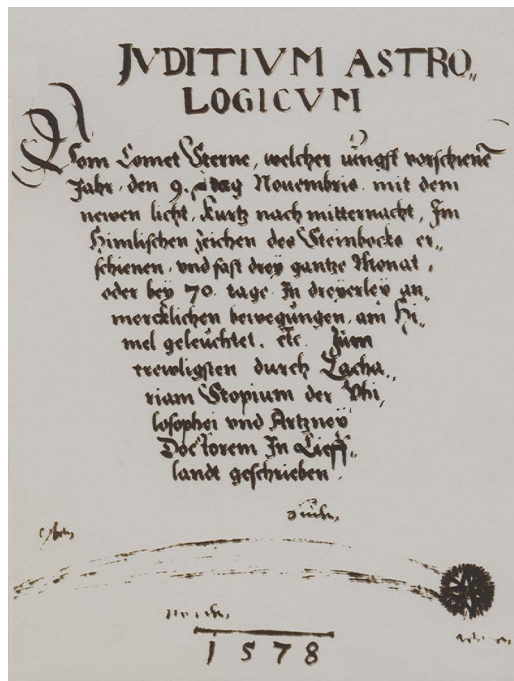 JVDITIVM ASTRO„
LOGICVM
Vom Comet Sterne, welcher üngst vorschienē
Jahr, den 9. tag Nouembris mit dem
newen licht, kurtz nach mitternacht, Im
Himlischen zeichen des Steinbocks er„
schienen, vnd fast drey gantze Monat,
oder bey 70. tage In dreyerley an„
mercklichen bewegungen, am Hi„
mel geleuchtet, etc. Zum
trewligsten durch Zacha„
riam Stopium der Phi„
losophei vnd Artzney
Doctorem In Lieff„
landt geschrieben.
1578